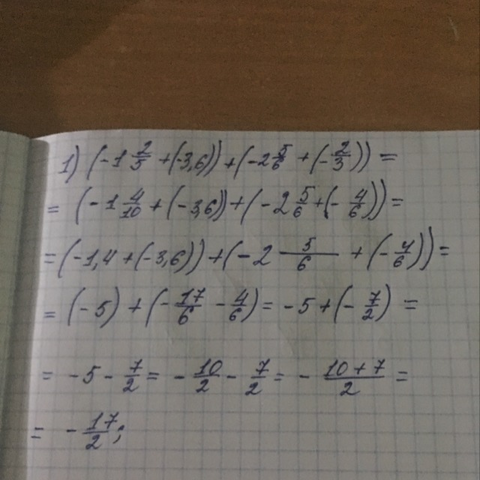 1) (-1 2/5 + (-3,6)) + (-2 5/6 + (-2/3)) =
= (-1 4/10 + (-3,6)) + (-2 5/6 + (-4/6)) =
= (-1,4 + (-3,6)) + (-2 5/6 + (-4/6)) =
= (-5) + (-17/6 - 4/6) = -5 + (-7/2) =
= -5 - 7/2 = -10/2 - 7/2 = - (10+7)/2 =
= -17/2;